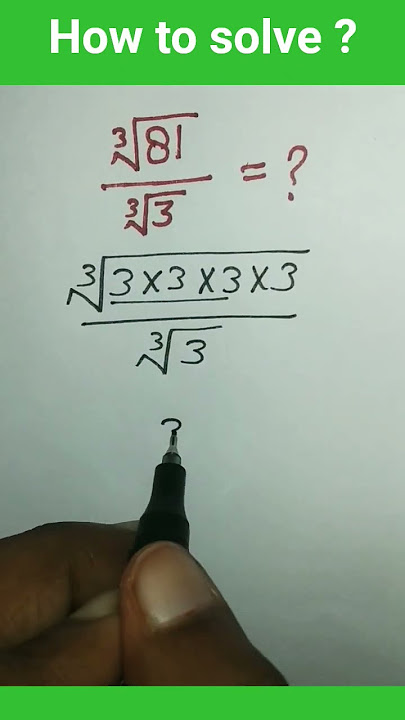 How to solve ?
∛81
/ ∛3 = ?
∛3×3×3×3
/ ∛3